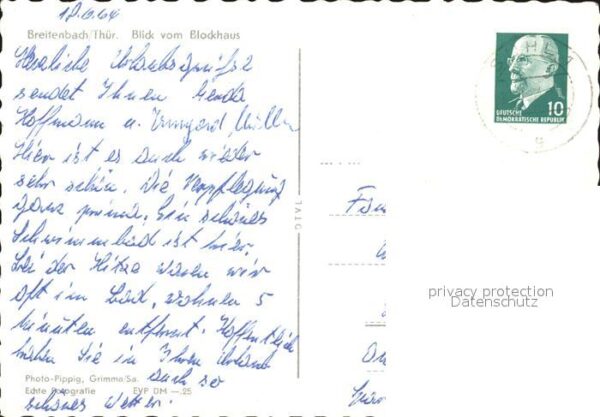 18.6.64
Breitenbach/Thür. Blick vom Blockhaus
Herzliche Urlaubsgrüße
sendet Ihnen Gerda
Hoffmann u. Irmgard Müller
Hier ist es auch wieder
sehr schön. Die Verpflegung
ganz prima. Ein schönes
Schwimmbad ist hier.
bei der Hitze waren wir
oft im Bad, wohnen 5
Minuten entfernt. Hoffentlich
haben Sie in Ihrem Urlaub
auch so
schönes Wetter.
Photo-Pippig, Grimma/Sa.
Echte Fotografie EVP DM —.25
10
DEUTSCHE
DEMOKRATISCHE REPUBLIK
Fam
privacy protection
Datenschutz